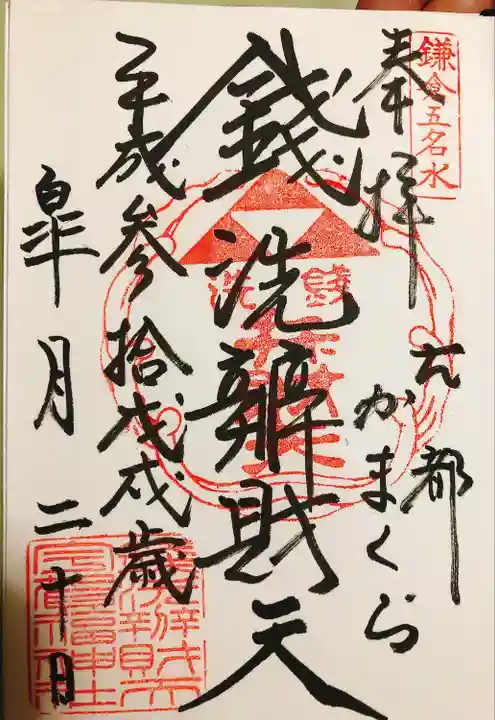 鎌倉五名水
奉拝
古都
かまくら
銭洗辨財天
銭洗
平成参拾戊戌歳
皐月二十日